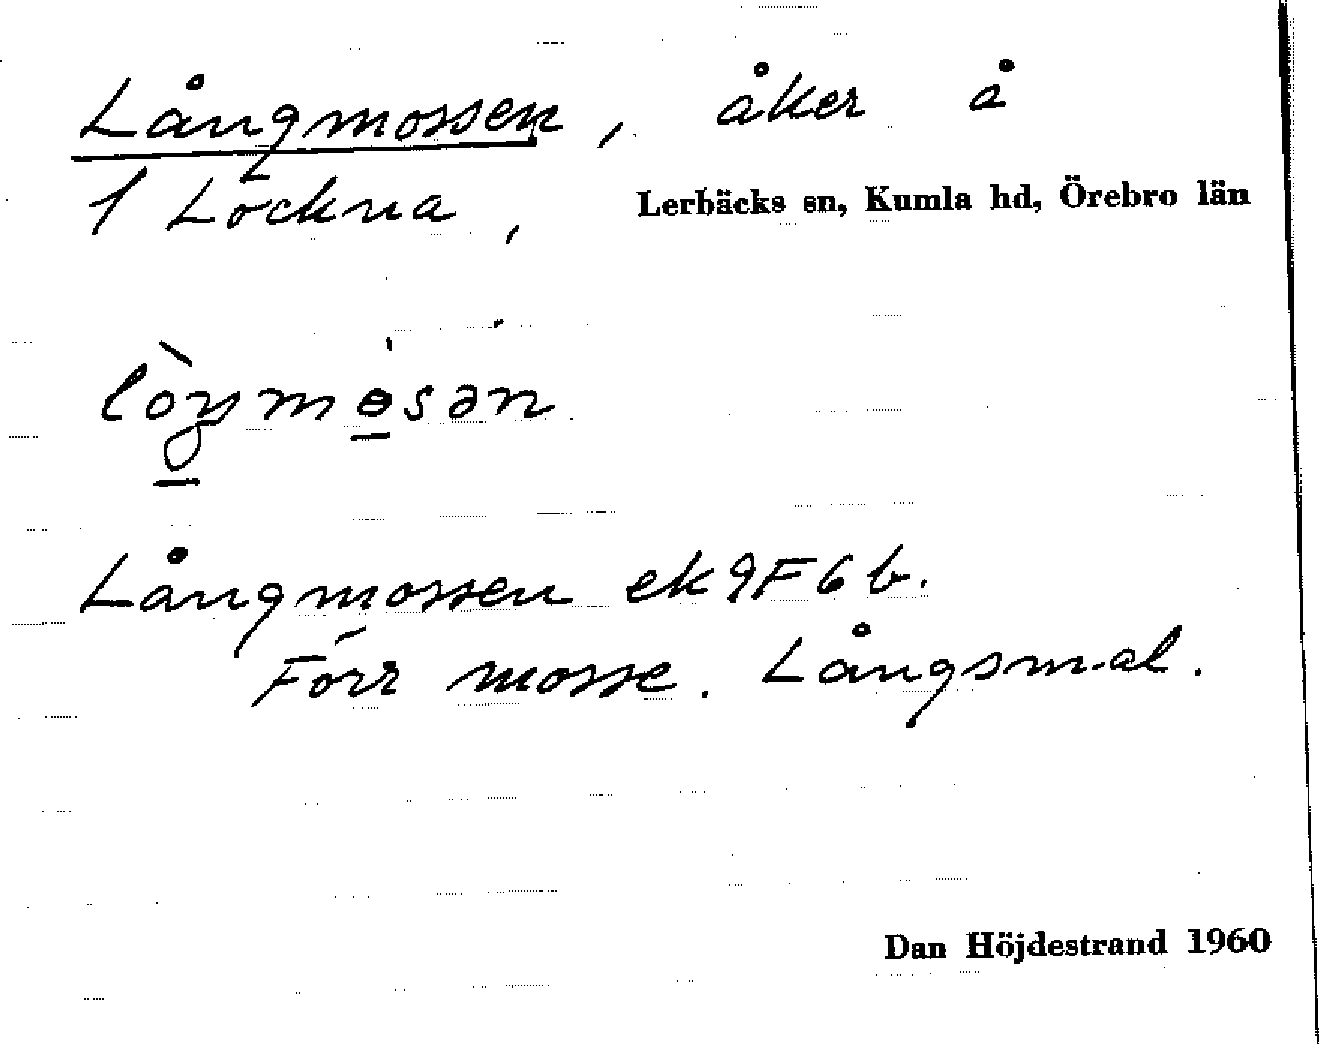 Långmossen, åker å
1 Löckna, Lerbäcks sn, Kumla hd, Örebro län
Långmossen ek 9F6b.
Förr mosse. Långsmal.
Dan Höjdestrand 1960